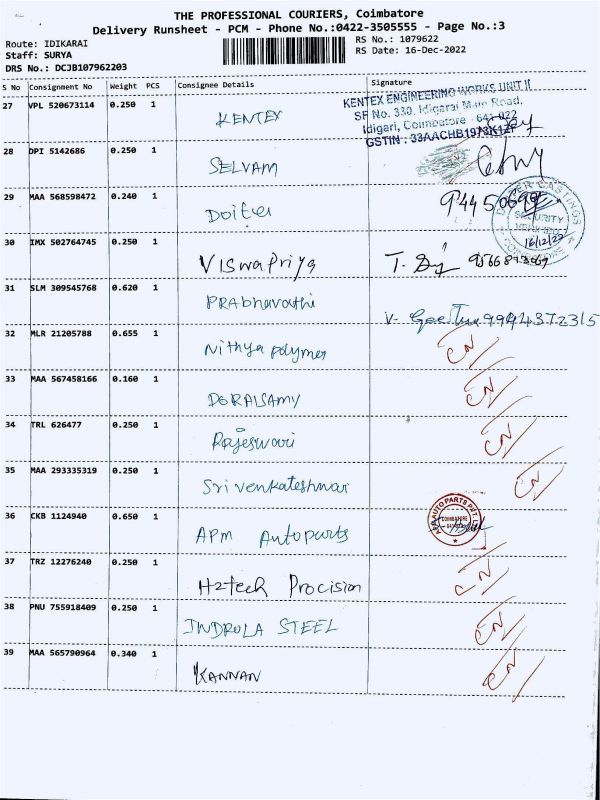 THE PROFESSIONAL COURIERS, Coimbatore
Delivery Runsheet - PCM - Phone No.:0422-3505555 - Page No.:3
Route: IDIKARAI
Staff: SURYA
DRS No.: DCJB107962203
RS No.: 1079622
RS Date: 16-Dec-2022
S No Consignment No Weight PCS Consignee Details Signature
27 VPL 520673114 0.250 1 KENTEX
KENTEX ENGINEERING WORKS UNIT II
SF No. 330, Idigarai Main Road,
Idigari, Coimbatore - 641 022
GSTIN : 33AACHB1973K1ZF
28 DPI 5142686 0.250 1 SELVAM
29 MAA 568598472 0.240 1 Doiter
CASTINGS
SECURITY
16/12/22
30 IMX 502764745 0.250 1 Viswapriya T.
31 SLM 309545768 0.620 1 PRAbhavathi V. Geetha 9994372315
32 MLR 21205788 0.655 1 Nithya polymer CN
33 MAA 567458166 0.160 1 DORAISAMY CN
34 TRL 626477 0.250 1 Rajeswari CN
35 MAA 293335319 0.250 1 Sri venkateshwar CN
36 CKB 1124940 0.650 1 APM Autoparts
AUTO PARTS PVT. LTD
COIMBATORE
37 TRZ 12276240 0.250 1 Hztech Procision CN
38 PNU 755918409 0.250 1 INDROLA STEEL CN
39 MAA 565790964 0.340 1 KANNAN CN